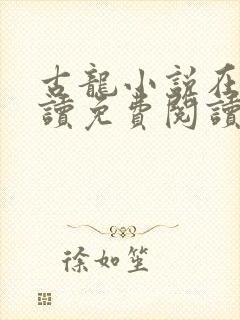 古龍小說在
讀免費閱讀
徐如笙